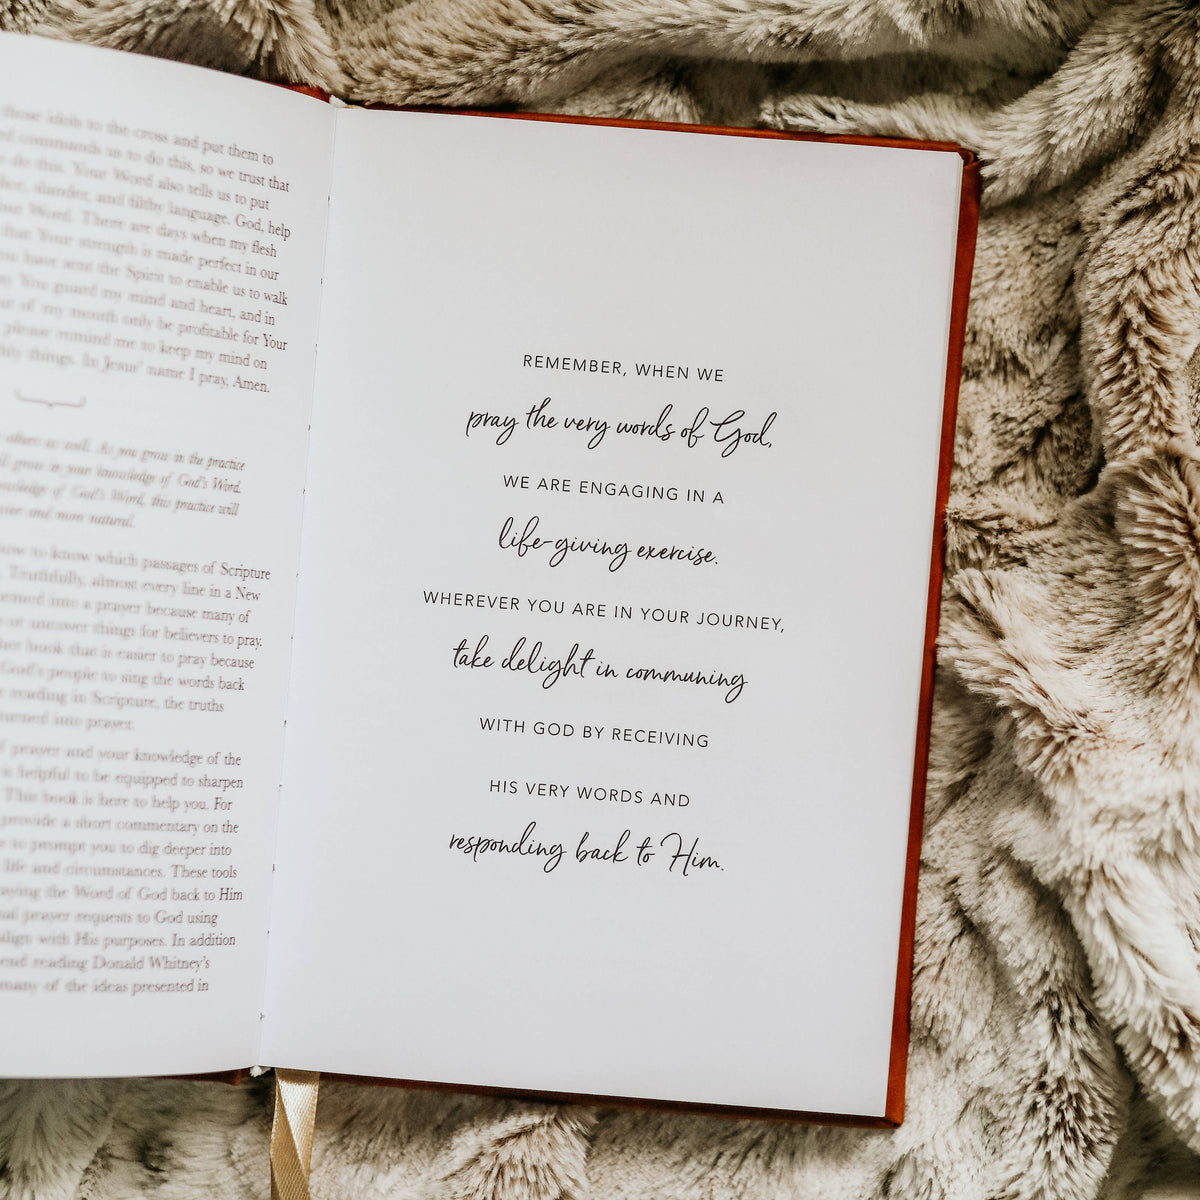 those idols to the cross and put them to
commands us to do this, so we trust that
do this. Your Word also tells us to put
slander, and filthy language. God, help
Your Word. There are days when my flesh
that Your strength is made perfect in our
you have sent the Spirit to enable us to walk
You guard my mind and heart, and in
of my mouth only be profitable for Your
please remind me to keep my mind on
things. In Jesus' name I pray, Amen.
others as well. As you grow in the practice
grow in your knowledge of God's Word.
knowledge of God's Word, this practice will
and more natural.
how to know which passages of Scripture
Truthfully, almost every line in a New
turned into a prayer because many of
or uncover things for believers to pray.
book that is easier to pray because
God's people to sing the words back
reading in Scripture, the truths
turned into prayer.
prayer and your knowledge of the
is helpful to be equipped to sharpen
This book is here to help you. For
provide a short commentary on the
to prompt you to dig deeper into
life and circumstances. These tools
praying the Word of God back to Him
prayer requests to God using
align with His purposes. In addition
reading Donald Whitney's
many of the ideas presented in
REMEMBER, WHEN WE
pray the very words of God,
WE ARE ENGAGING IN A
life-giving exercise.
WHEREVER YOU ARE IN YOUR JOURNEY,
take delight in communing
WITH GOD BY RECEIVING
HIS VERY WORDS AND
responding back to Him.